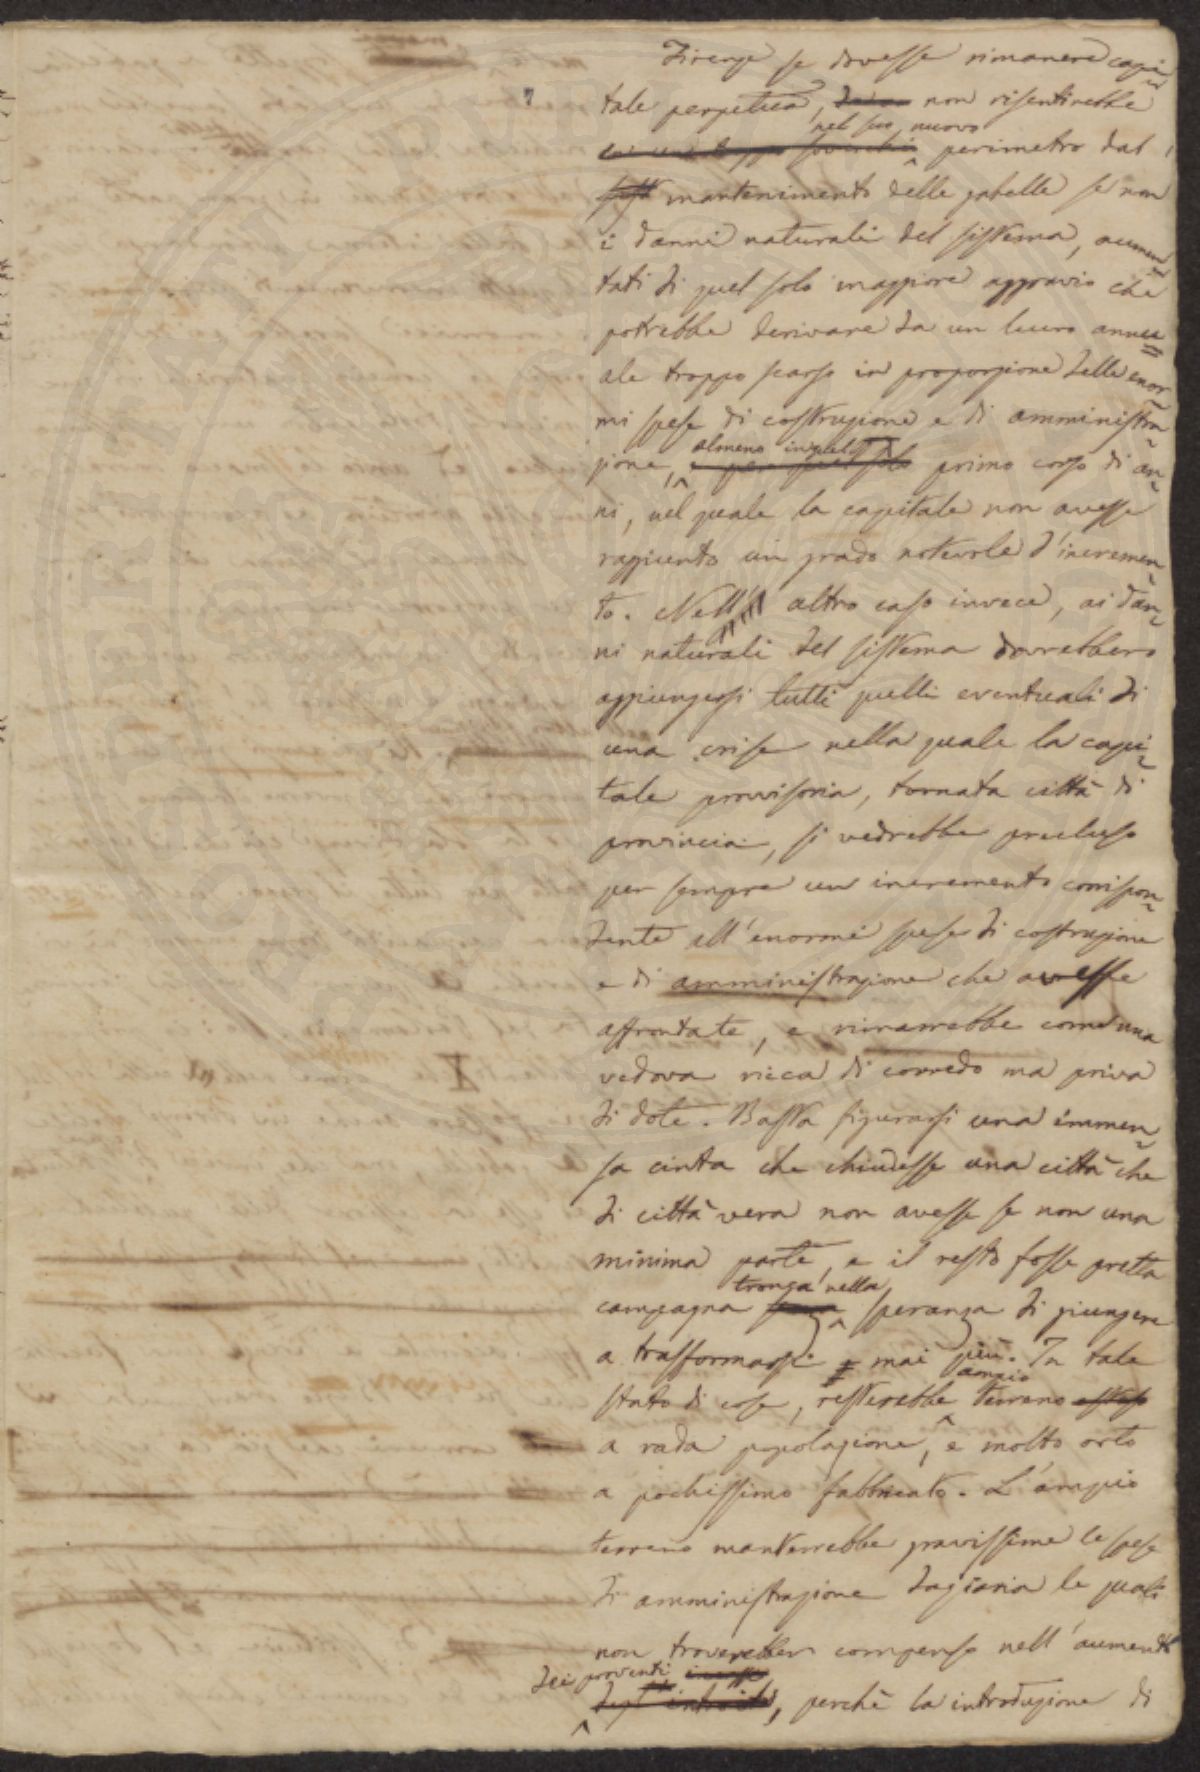 Firenze se dovesse rimanere capi
tale perpetua, non risentirebbe
nel suo nuovo
perimetro dal
mantenimento delle gabelle se non
i danni naturali del sistema, aumen
tati di quel solo maggiore aggravio che
potrebbe derivare da un lucro annu
ale troppo scarso in proporzione delle enor
mi spese di costruzione e di amministra
almeno in quel
zione, primo corso di an
ni, nel quale la capitale non avesse
raggiunto un grado notevole d'incremen
to. Nell' altro caso invece, ai dan
ni naturali del sistema dovrebbero
aggiungersi tutti quelli eventuali di
una crise nella quale la capi
tale provvisoria, tornata città di
provincia, si vedrebbe precluso
per sempre un incremento corrispon
dente all'enormi spese di costruzione
e di amministrazione che avesse
affrontate, e rimarrebbe come una
vedova ricca di corredo ma priva
di dote. Basta figurarsi una immen
sa cinta che chiudesse una città che
di città vera non avesse se non una
minima parte, e il resto fosse pretta
tronca nella
campagna speranza di giungere
a trasformarsi mai più. In tale
ampio
stato di cose, resterebbe terreno esteso
a rada popolazione, e molto orto
a pochissimo fabbricato. L'ampio
terreno manterrebbe gravissime le spese
di amministrazione daziaria le quali
non troverebber compenso nell'aumento
dei proventi
degl' introiti, perchè la introduzione di